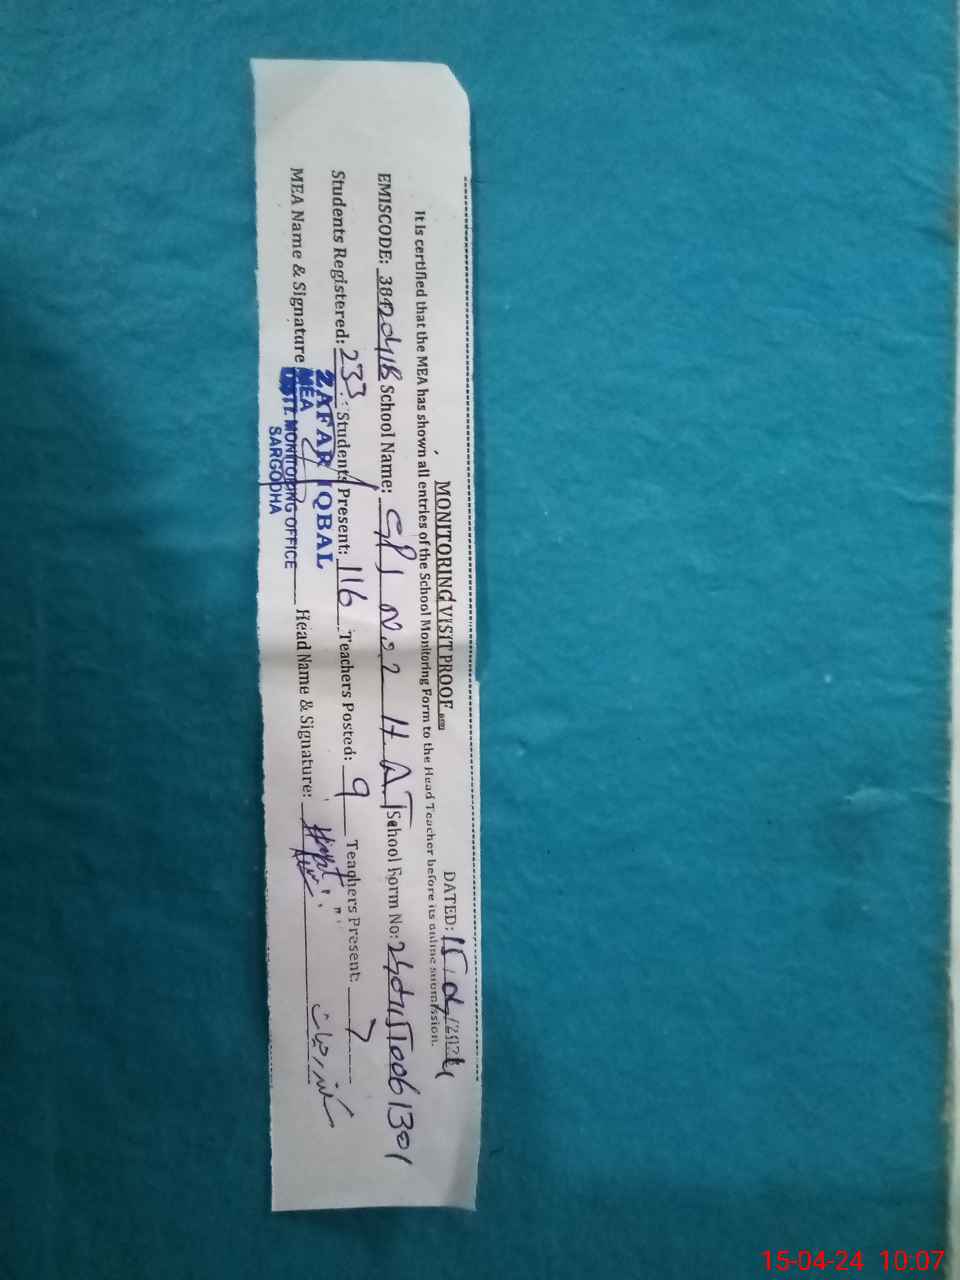 MONITORING VISIT PROOF DATED: 15.04/2024
It is certified that the MEA has shown all entries of the School Monitoring Form to the Head Teacher before its online submission.
EMISCODE: School Name: No. 2 School Form No:
Students Registered: 233 Students Present: 116 Teachers Posted: 9 Teachers Present: 7
MEA Name & Signature Head Name & Signature: سکندر حیات
ZAFAR IQBAL
MEA
DISTT. MONITORING OFFICE
SARGODHA
15-04-24 10:07